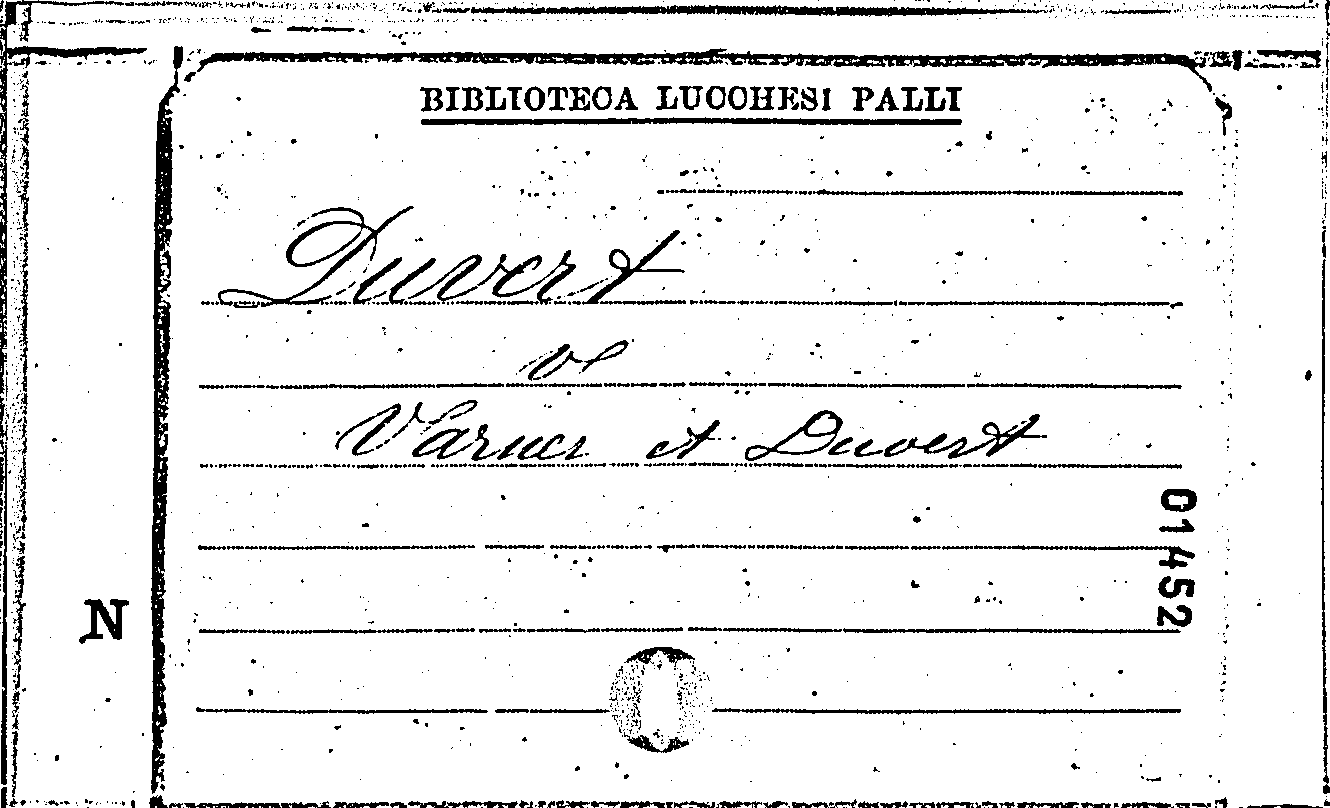 BIBLIOTECA LUCCHESI PALLI
Duvert
v
Varner et Duvert
01452
N